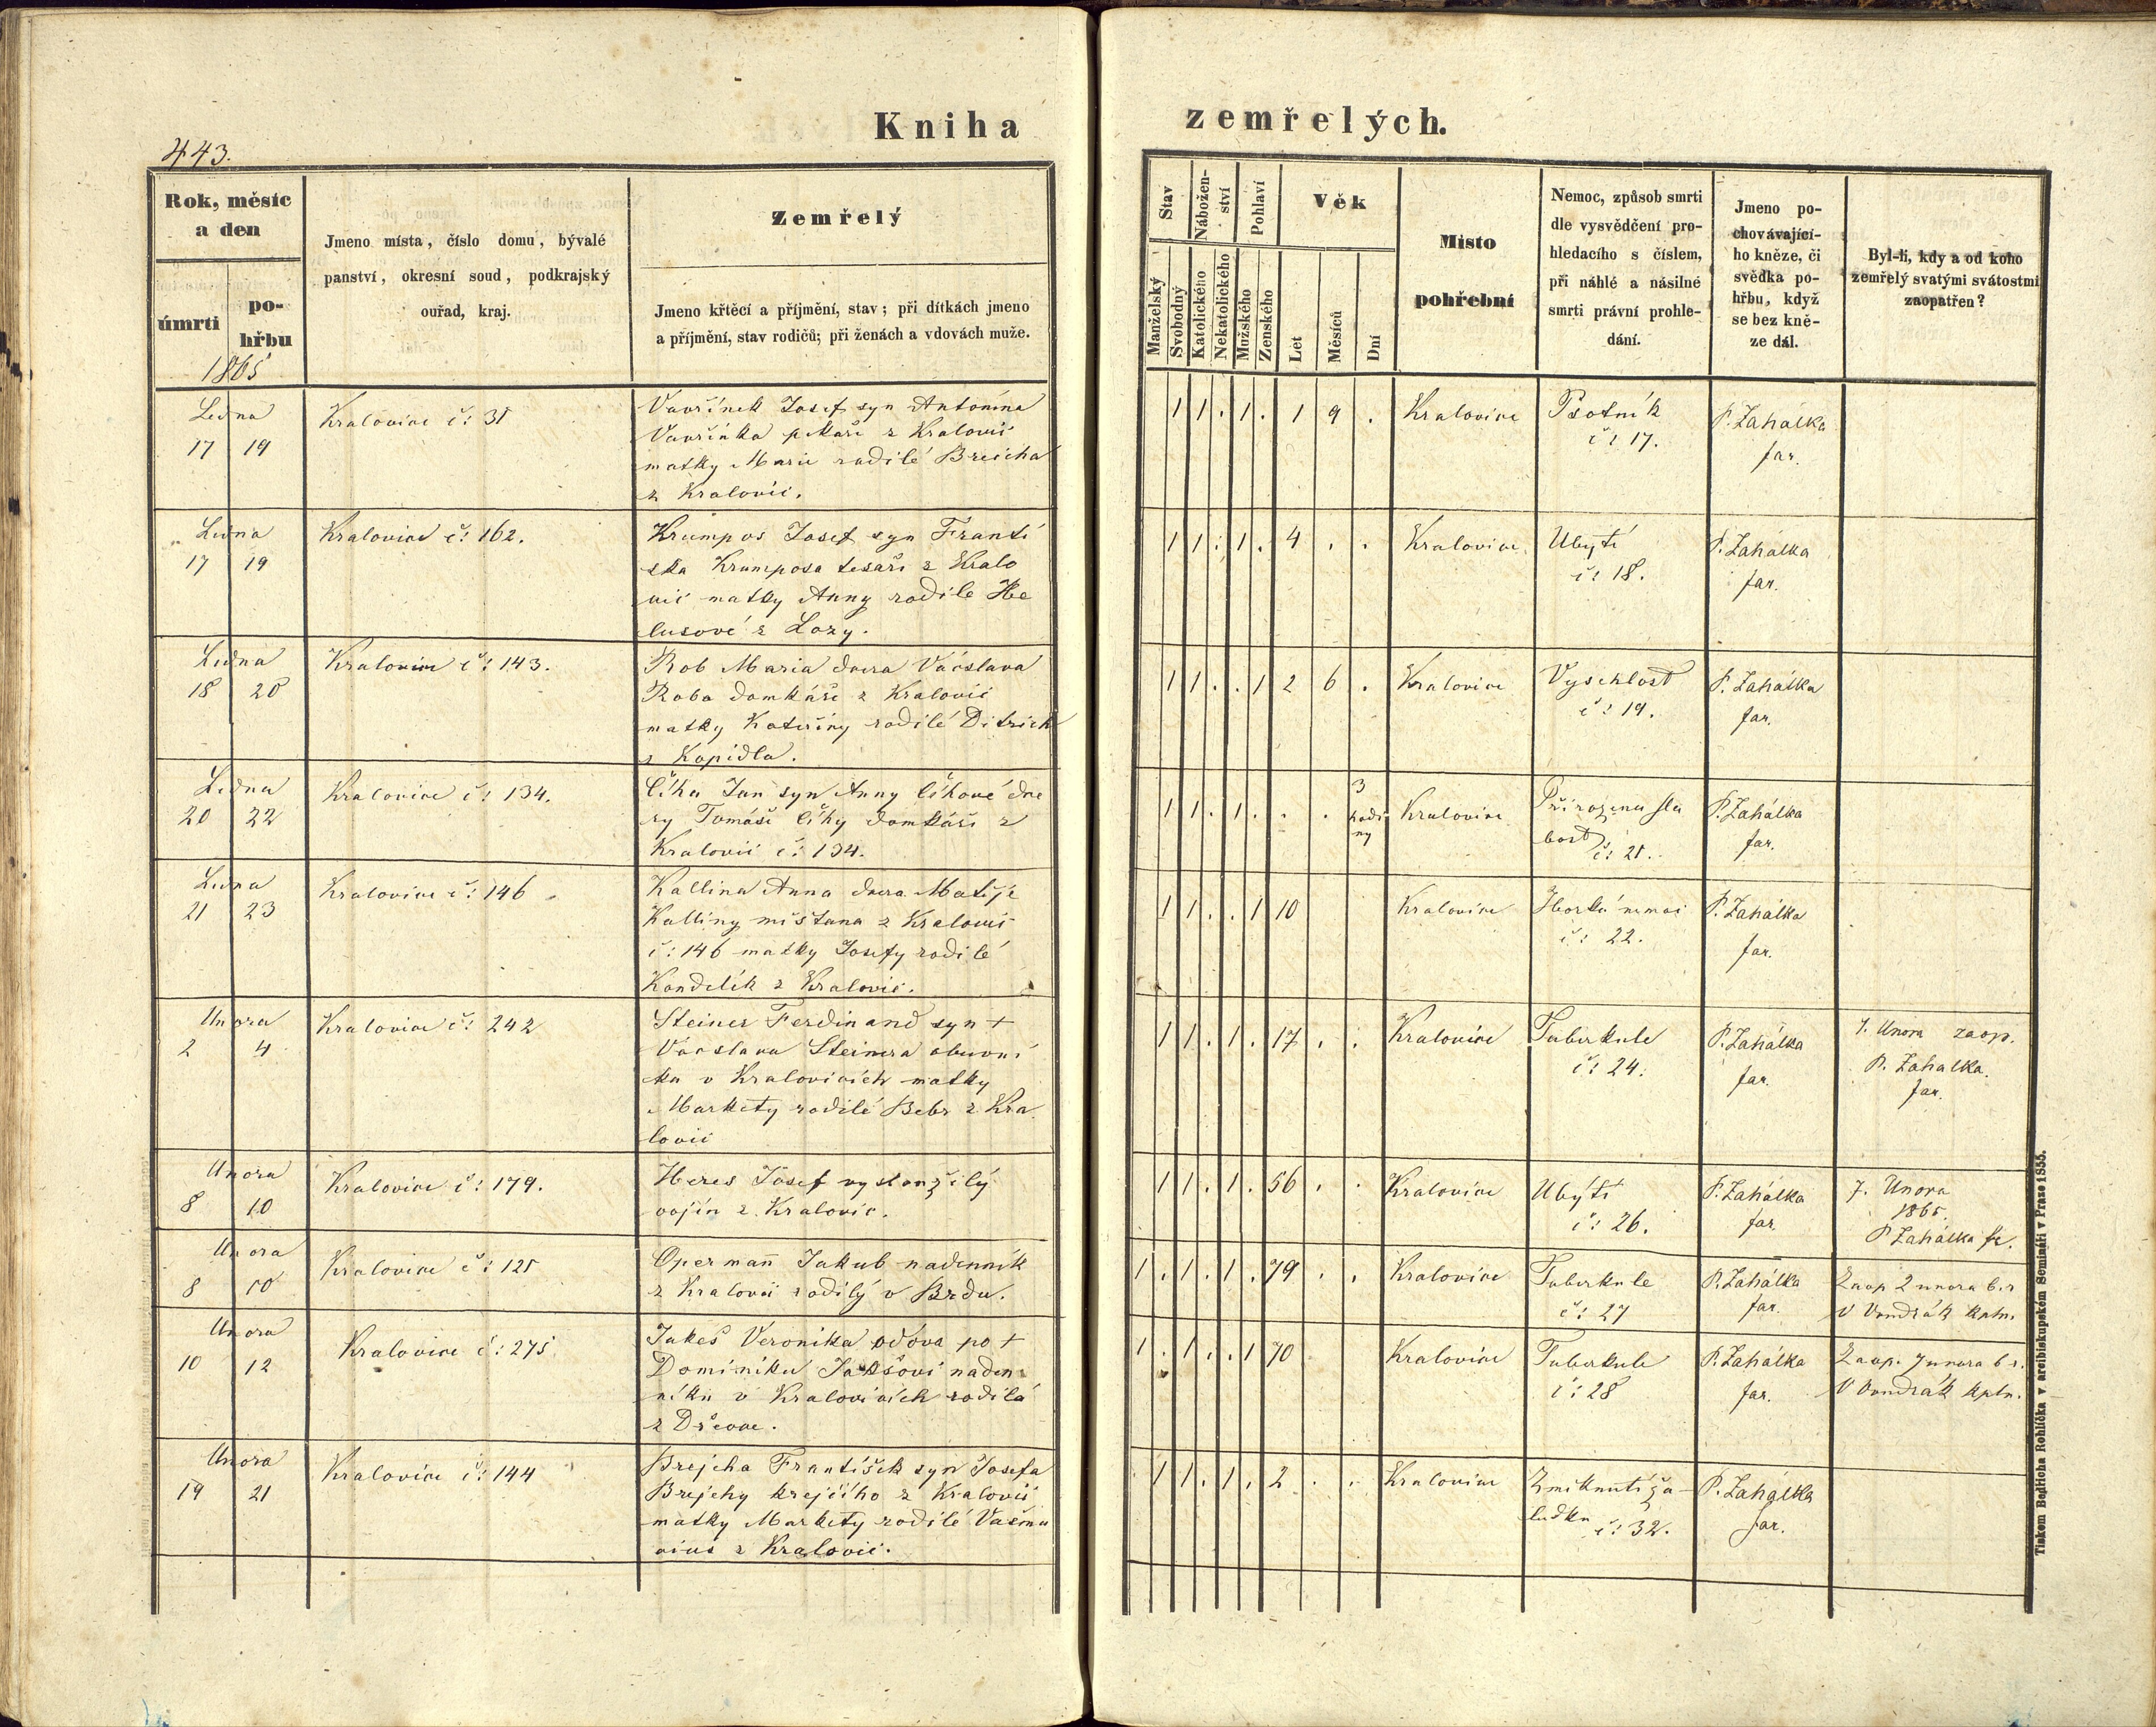 Kniha
zemřelých.
443.
Rok, měsíc
a den
úmrtí
po-
hřbu
1865
Jmeno místa, číslo domu, bývalé
panství, okresní soud, podkrajský
ouřad, kraj.
Zemřelý
Jmeno křtěcí a příjmění, stav; při dítkách jmeno
a příjmění, stav rodičů; při ženách a vdovách muže.
Stav
Nábožen-
ství
Pohlaví
Věk
Manželský
Svobodný
Katolického
Nekatolického
Mužského
Ženského
Let
Měsíců
Dní
Místo
pohřební
Nemoc, způsob smrti
dle vysvědčení pro-
hledacího s číslem,
při náhlé a násilné
smrti právní prohle-
dání.
Jmeno po-
chovávající-
ho kněze, či
svědka po-
hřbu, když
se bez kně-
ze dál.
Byl-li, kdy a od koho
zemřelý svatými svátostmi
zaopatřen?
Ledna
17 19
Kralovice č: 31
Vavřínek Josef syn Antonína
Vavřínka pekaře z Kralovic
matky Marie rodilé Brejcha
z Kralovic.
1 1 . 1 . 1 9 .
Kralovice
Psotník
č: 17.
P. Zahálka
far.
Ledna
17 19
Kralovice č: 162.
Krumpos Josef syn Franti
ska Krumposa tesaře z Kralo
vic matky Anny rodilé He
lusové z Lozy.
1 1 . 1 . 4 . .
Kralovice
Ubytí
č: 18.
P. Zahálka
far.
Ledna
18 20
Kralovice č: 143.
Rob Maria dcera Václava
Roba domkáře z Kralovic
matky Kateřiny rodilé Ditrich
z Kopidla.
1 1 . . 1 2 6 .
Kralovice
Vyschlost
č: 19.
P. Zahálka
far.
Ledna
20 22
Kralovice č: 134.
Číha Jan syn Anny Číhové dce
ry Tomáše Číhy domkáře z
Kralovic č: 134.
1 1 . 1 . . . 3
hodi
ny
Kralovice
Přirozena sla
bost
č: 21.
P. Zahálka
far.
Ledna
21 23
Kralovice č: 146
Kallina Anna dcera Matěje
Kalliny měšťana z Kralovic
č: 146 matky Josefy rodilé
Kondelík z Kralovic.
1 1 . . 1 10
Kralovice
Horká nemoc
č: 22.
P. Zahálka
far.
Unora
2 4
Kralovice č: 242
Steiner Ferdinand syn +
Václava Steinera obuvní
ka v Kralovicích matky
Markety rodilé Bebr z Kra
lovic
1 1 . 1 . 17 . .
Kralovice
Tuberkule
č: 24.
P. Zahálka
far.
1. Unora zaop.
P. Zahalka.
far.
Unora
8 10
Kralovice č: 179.
Heres Josef vysloužilý
vojín z Kralovic.
1 1 . 1 . 56 . .
Kralovice
Ubýti
č: 26.
P. Zahálka
far.
7. Unora
1865.
P Zahálka fr.
Unora
8 10
Kralovice č: 121
Opermañ Jakub nadenník
z Kralovic rodilý v Brdu.
1 . 1 . 1 . 79 . .
Kralovice
Tuberkule
č: 27
P. Zahálka
far.
Zaop 2 unora b.r
V Vondrák kpln.
Unora
10 12
Kralovice č: 275
Jakeš Veronika vdova po +
Dominiku Jakšovi naden
níku v Kralovicích rodilá
z Dřevce.
1 . 1 . . 1 70
Kralovice
Tuberkule
č: 28
P. Zahálka
far.
Zaop. 7 unora b r.
V Vondrák kpln.
Unora
19 21
Kralovice č: 144
Brejcha František syn Josefa
Brejchy krejčího z Kralovic
matky Markety rodilé
z Kralovic.
1 1 . 1 . 2 . .
Kralovice
Zmíknutí ža-
ludku č: 32.
P. Zahálka
far.
Tiskem Bedřicha Rohlíčka v arcibiskupském Semináři v Praze 1855.